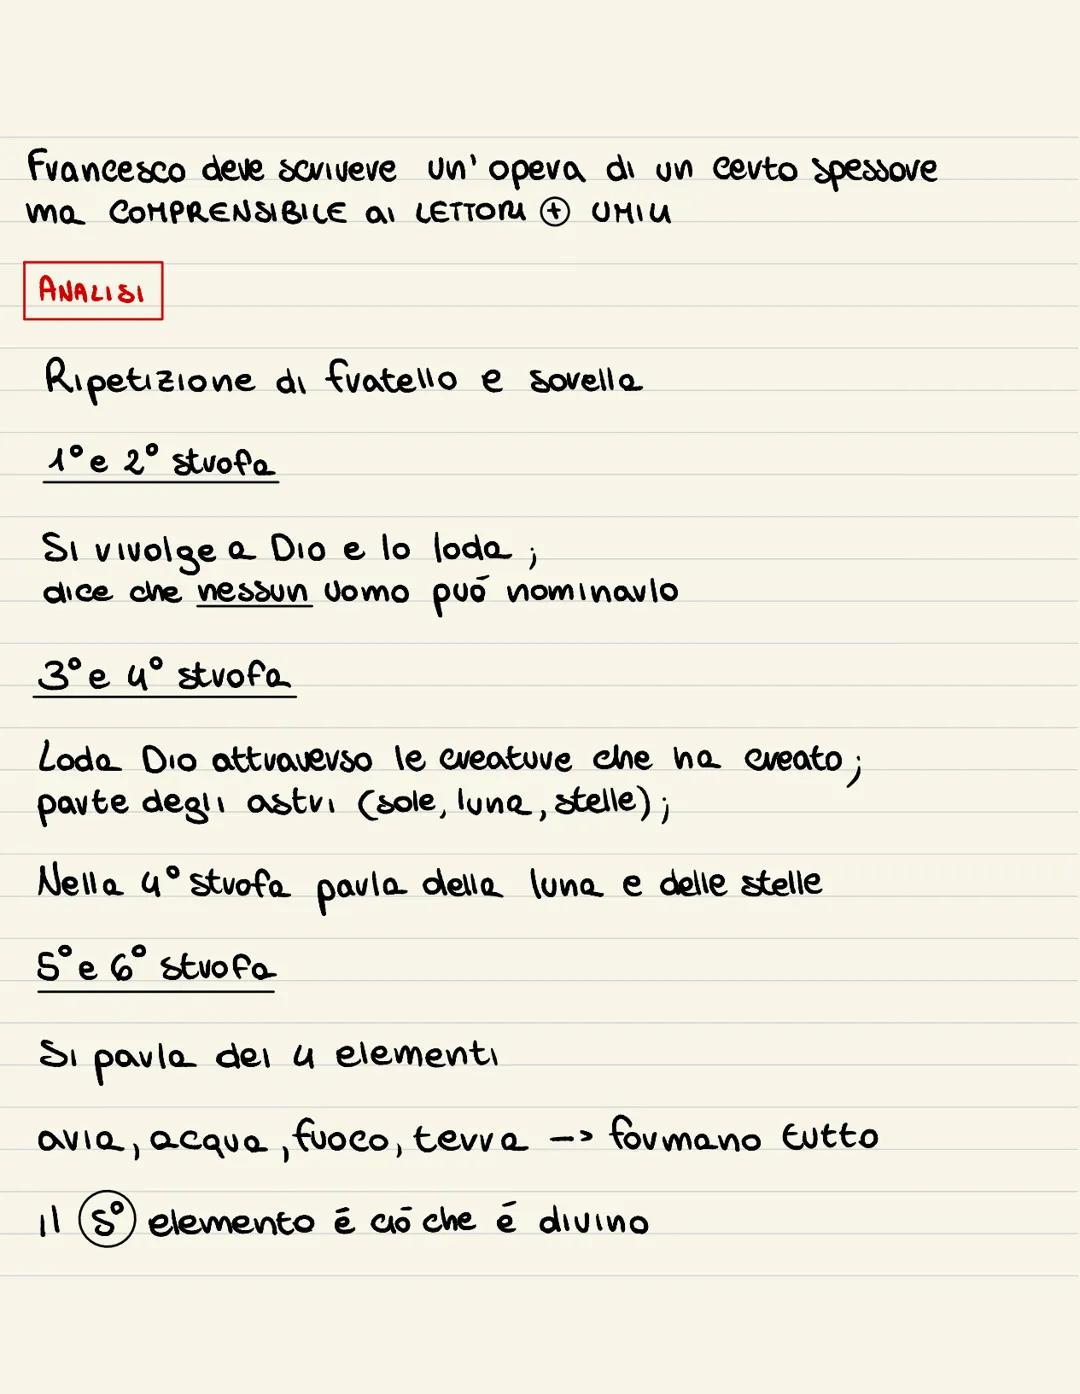 Francesco deve scrivere un' opera di un certo spessore
ma COMPRENSIBILE ai LETTORI ⊕ UMILI
ANALISI
Ripetizione di fratello e sorella
1° e 2° strofa
Si rivolge a Dio e lo loda ;
dice che nessun uomo puó nominarlo
3° e 4° strofa
Loda Dio attraverso le creature che ha creato ;
parte degli astri (sole, luna, stelle) ;
Nella 4° strofa parla della luna e delle stelle
5° e 6° strofa
Si parla dei 4 elementi
aria, acqua, fuoco, terra -> formano tutto
il 5° elemento é ció che é divino